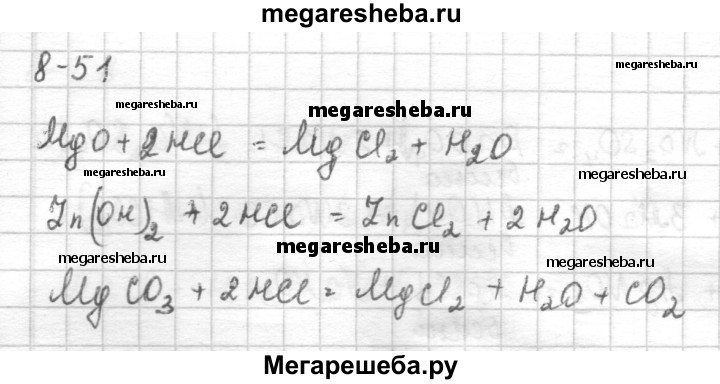 megaresheba.ru
8-51
megaresheba.ru
megaresheba.ru
megaresheba.ru
MgO + 2HCl = MgCl₂ + H₂O
megaresheba.ru
megaresheba.ru
Zn(OH)₂ + 2HCl = ZnCl₂ + 2H₂O
megaresheba.ru
megaresheba.ru
megaresheba.ru
MgCO₃ + 2HCl = MgCl₂ + H₂O + CO₂
Мегарешеба.ру